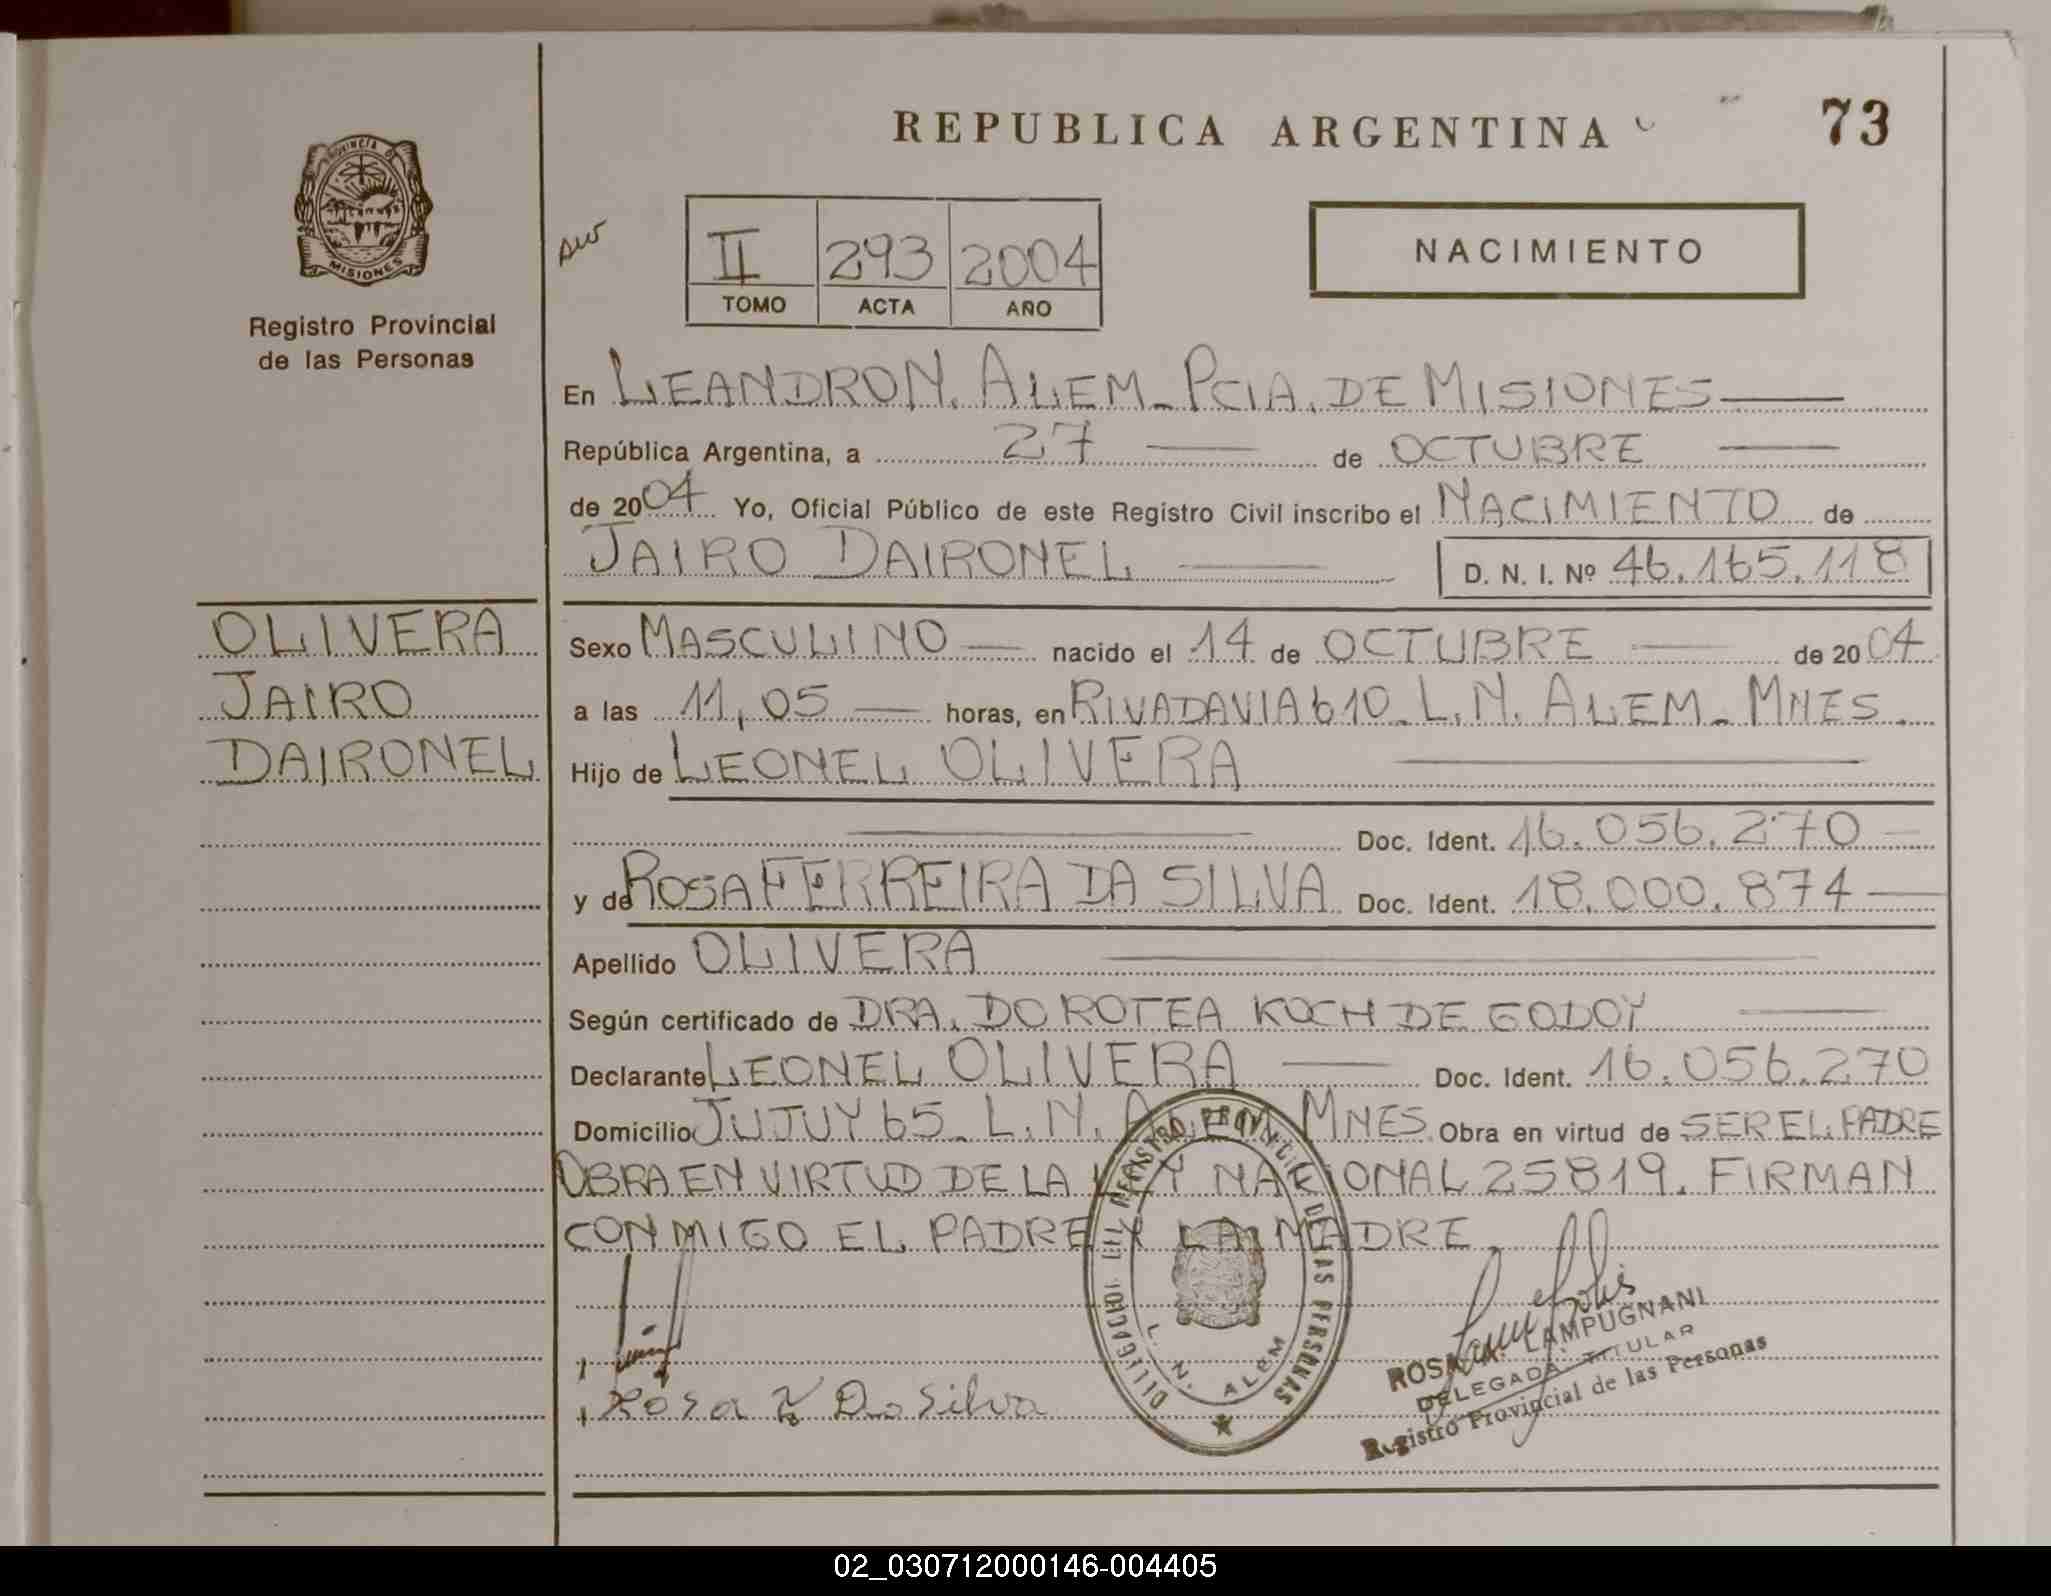 REPUBLICA ARGENTINA
73
PROVINCIA DE
MISIONES
Registro Provincial
de las Personas
II 293 2004
TOMO ACTA AÑO
NACIMIENTO
En LEANDRO N. ALEM - PCIA. DE MISIONES
República Argentina, a 27 de OCTUBRE
de 2004 Yo, Oficial Público de este Registro Civil inscribo el NACIMIENTO de
JAIRO DAIRONEL D. N. I. Nº 46.165.118
OLIVERA
JAIRO
DAIRONEL
Sexo MASCULINO nacido el 14 de OCTUBRE de 2004
a las 11,05 horas, en RIVADAVIA 610 - L. N. ALEM - MNES.
Hijo de LEONEL OLIVERA
Doc. Ident. 16.056.270
y de ROSA FERREIRA DA SILVA Doc. Ident. 18.000.874
Apellido OLIVERA
Según certificado de DRA. DOROTEA KOCH DE GODOY
Declarante LEONEL OLIVERA Doc. Ident. 16.056.270
Domicilio JUJUY 65 - L. N. ALEM MNES Obra en virtud de SER EL PADRE
OBRA EN VIRTUD DE LA LEY NACIONAL 25819. FIRMAN
CONMIGO EL PADRE Y LA MADRE
REGISTRO PROVINCIAL DE LAS PERSONAS
L. N. ALEM
Rosa Da Silva
ROSA LAMPUGNANI
DELEGADA TITULAR
Registro Provincial de las Personas
02_030712000146-004405